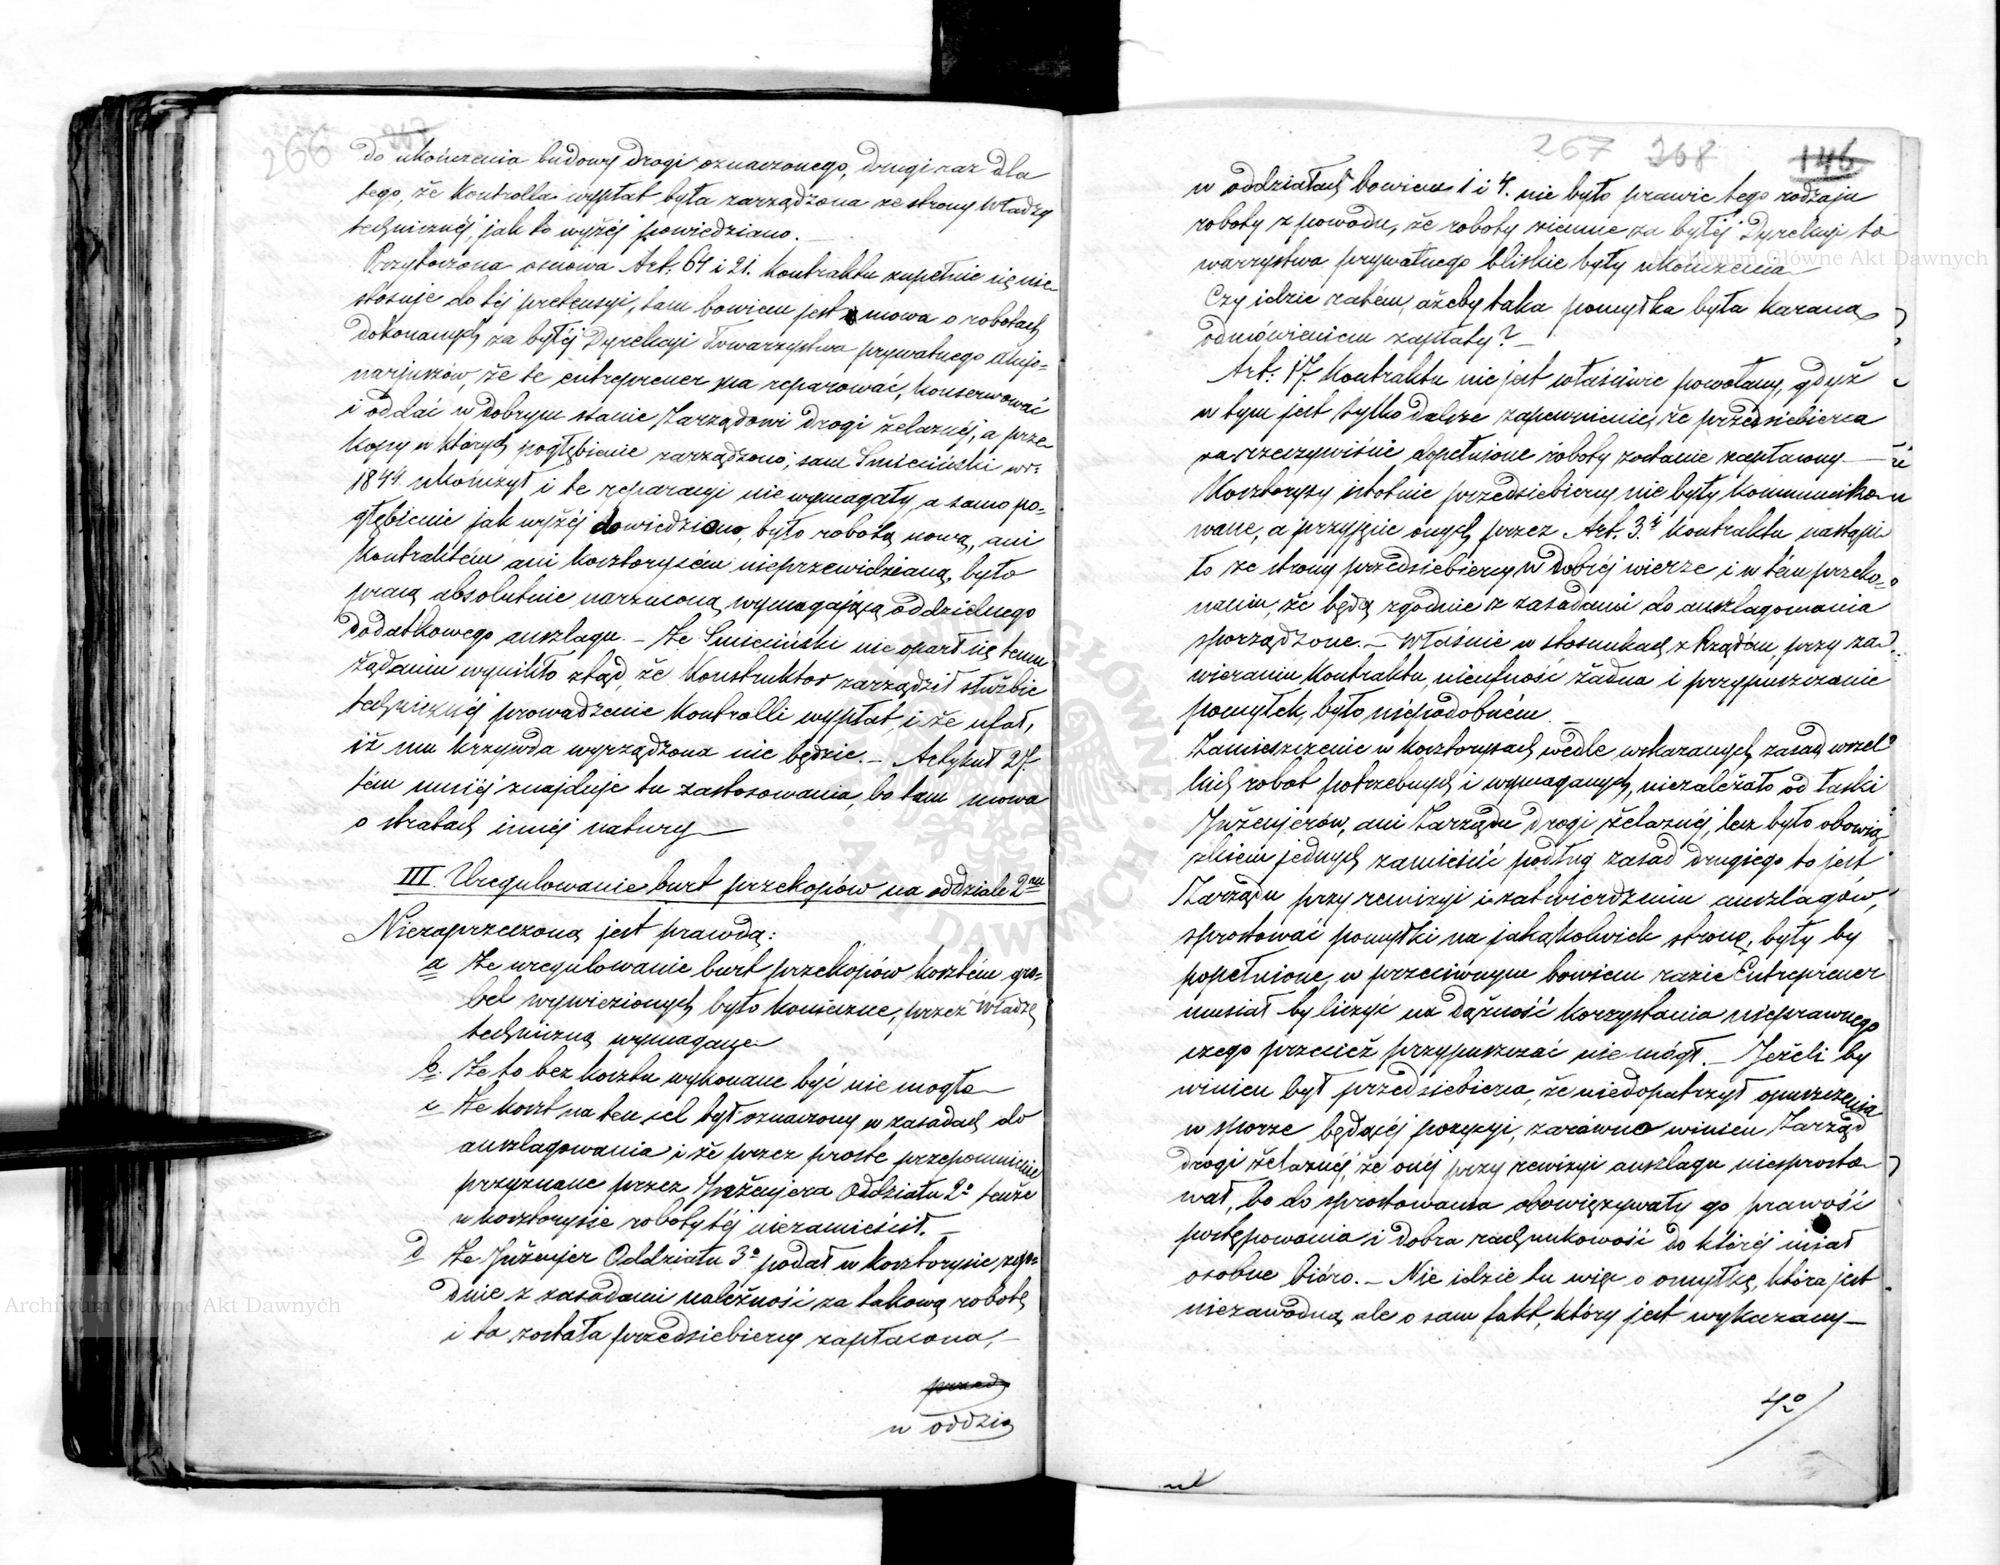 266
do ukończenia budowy drogi oznaczonego, drugi raz dla
tego, że Kontrolla wypłat była zarządzona ze strony Władzy
technicznéj, jak to wyżéj powiedziano. —
Przytoczona osnowa Art: 64 i 21. Kontraktu zupełnie się nie
stosuje do téj pretensyi, tam bowiem jest mowa o robotach
dokonanych za byłéj Dyrekcyi Towarzystwa prywatnego akcjo-
narjuszów, że te entreprener ma reparować, konserwować
i oddać w dobrym stanie Zarządowi drogi żelaznéj, a prze
kopy w których pogłębienie zarządzono, sam Smieciński w r:
1844. ukończył i te reparacyi nie wymagały, a samo po-
głębienie jak wyżéj dowiedziono, było robotą nową, ani
Kontraktém ani kosztorysém nieprzewidzianą, było
pracą absolutnie narzuconą wymagającą oddzielnego
dodatkowego anszlagu. — Że Smieciński nie oparł się temu
żądaniu wynikło ztąd, że Konstruktor zarządził służbie
technicznéj prowadzenie Kontrolli wypłat, i że ufał,
iż mu krzywda wyrządzona nie będzie. — Artykuł 27.
tém mniéj znajduje tu zastosowania, bo tam mowa
o stratach innéj natury —
III. Uregulowanie burt przekopów na oddziale 2m
Niezaprzeczoną jest prawdą:
a Że uregulowanie burt przekopów kosztém gro-
bel wywiezionych było konieczne, przez Władzę
techniczną wymagane
b. Że to bez kosztu wykonane być nie mogło
c Że koszt na ten cel był oznaczony w zasadach do
anszlagowania i że przez proste przepomnienie
przyznane przez Inżenjera Oddziału 2o tenże
w kosztorysie roboty téj niezamieścił. —
d Że Inżenjer Oddziału 3o podał w kosztorysie zgo-
dnie z zasadami należność za takową robotę
i ta została przedsiębiercy zapłacona, —
w oddzia
267 268 146
w oddziałach bowiem 1 i 4. nie było prawie tego rodzaju
roboty z powodu, że roboty ziemne za byłéj Dyrekcyi to
warzystwa prywatnego bliskie były ukończenia —
Czy idzie zatém, ażeby taka pomyłka była karana
odmówieniem zapłaty? —
Art: 17. Kontraktu nie jest właściwie powołany, gdyż
w tym jest tylko dalsze zapewnienie, że przedsiebierca
za rzeczywiście dopełnione roboty zostanie zapłacony —
Kosztorysy istotnie przedsiebiercy nie były kommuniko
wane, a przyjęcie onych przez Art. 3. Kontraktu nastąpi
ło ze strony przedsiebiercy w dobréj wierze i w tém przeko-
naniu, że będą zgodnie z zasadami do anszlagowania
sporządzone. — Właśnie w stosunkach z Rządém, przy za-
wieraniu Kontraktu, nieufność żadna i przypuszczanie
pomyłek, było niépodobném. —
Zamieszczenie w kosztorysach wedle wskazanych zasad wszel
kich robot potrzebnych i wymaganych, niezależało od łaski
Inżenjerów, ani Zarządu drogi żelaznéj, lecz było obowią
zkiem jednych zamieścić podług zasad drugiego to jest
Zarządu przy rewizyi i zatwierdzeniu anszlagów,
sprostować pomyłki na jakąkolwiek stronę, były by
popełnione, w przeciwnym bowiem razie Entreprener
musiał by liczyć na dążność korzystania nieprawnego
czego przecież przypuszczać nie mógł. — Jeżeli by
winien był przedsiebierca, że niedopatrzył opuszczenia
w sporze będącéj pozycyi, zarówno winien Zarząd
drogi żelaznéj, że onéj przy rewizyi anszlagu niesprosto
wał, bo do sprostowania obowięzywały go prawość
postępowania i dobra rachunkowość do któréj miał
osobne bióro. — Nie idzie tu więc o omyłkę, która jest
niezawodną, ale o sam fakt, który jest wykazany —
4o
Archiwum Główne Akt Dawnych
Archiwum Główne Akt Dawnych